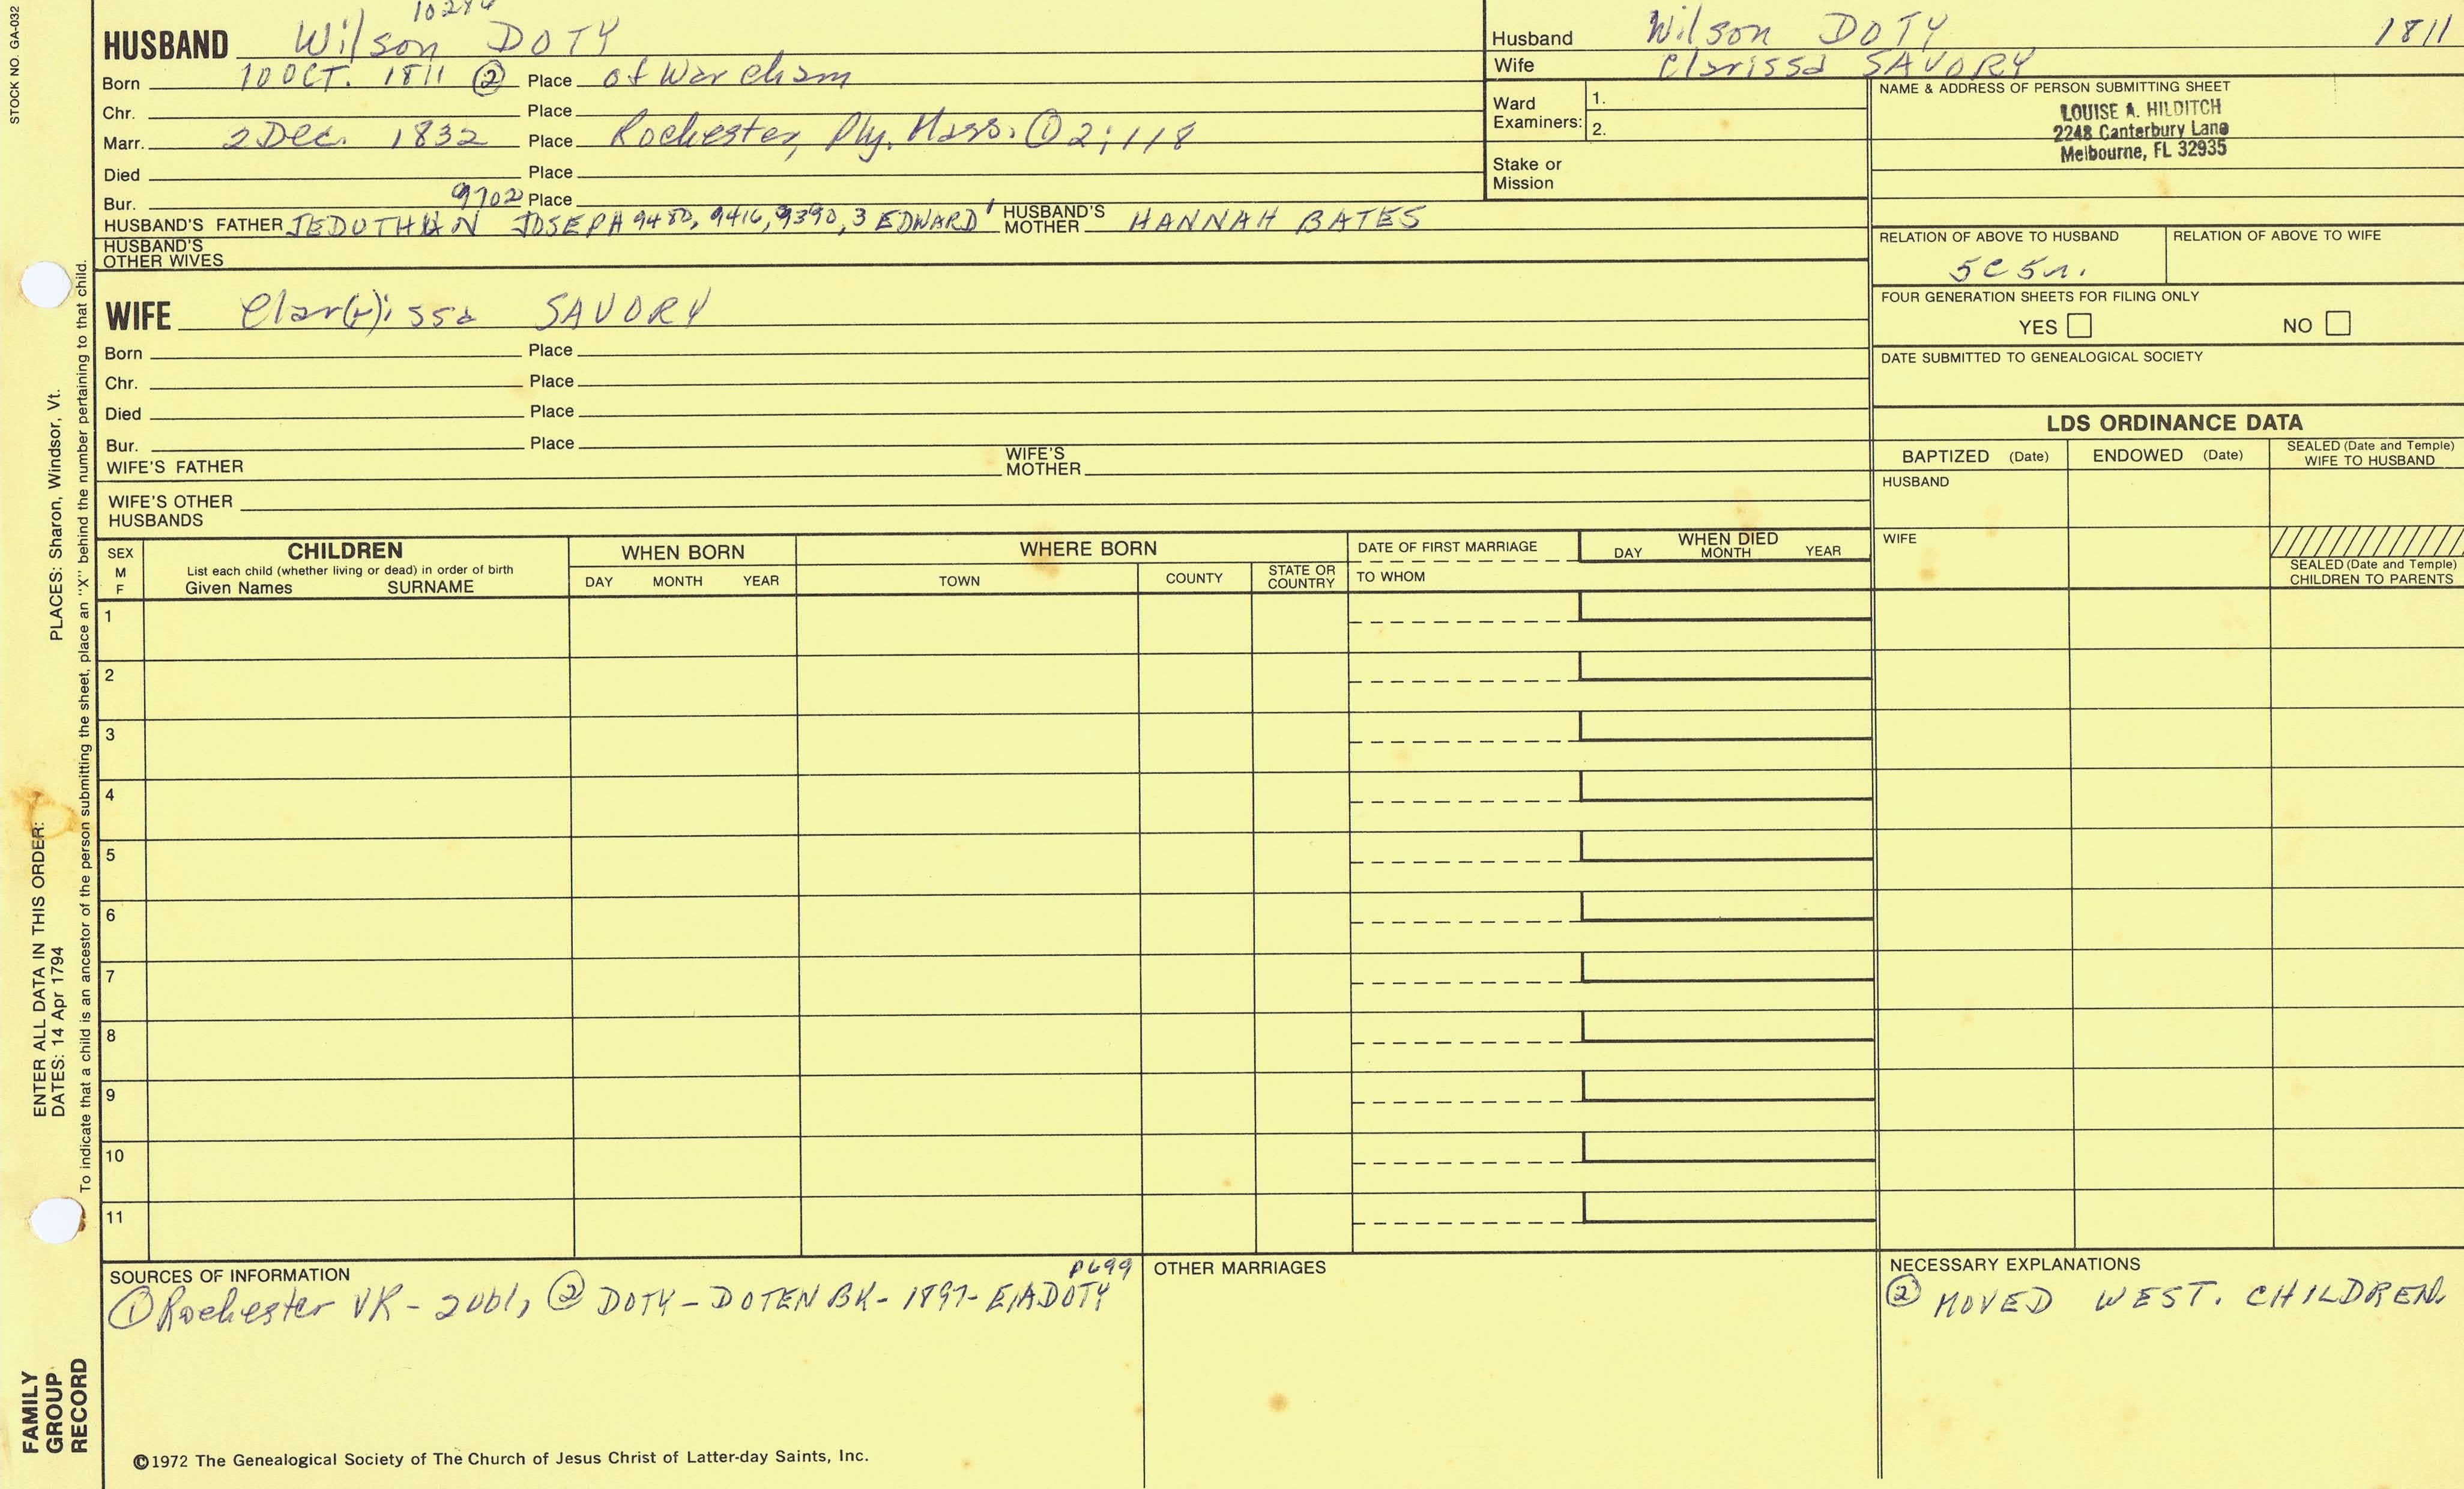 STOCK NO. GA-032
HUSBAND Wilson DOTY
Born 10 OCT. 1811 ② Place of Wareham
Chr. Place
Marr. 2 Dec. 1832 Place Rochester, Ply. Mass. ① 2;118
Died Place
Bur. 9702 Place
HUSBAND'S FATHER JEDUTHUN JOSEPH 9480, 9416, 9390, 3 EDWARD' HUSBAND'S MOTHER HANNAH BATES
HUSBAND'S OTHER WIVES
WIFE Clar(r)issa SAVORY
Born Place
Chr. Place
Died Place
Bur. Place
WIFE'S FATHER WIFE'S MOTHER
WIFE'S OTHER HUSBANDS
Husband Wilson DOTY 1811
Wife Clarissa SAVORY
Ward Examiners: 1.
2.
Stake or Mission
NAME & ADDRESS OF PERSON SUBMITTING SHEET
LOUISE A. HILDITCH
2248 Canterbury Lane
Melbourne, FL 32935
RELATION OF ABOVE TO HUSBAND RELATION OF ABOVE TO WIFE
5C5r.
FOUR GENERATION SHEETS FOR FILING ONLY
YES NO
DATE SUBMITTED TO GENEALOGICAL SOCIETY
LDS ORDINANCE DATA
BAPTIZED (Date) ENDOWED (Date) SEALED (Date and Temple) WIFE TO HUSBAND
HUSBAND
WIFE
SEALED (Date and Temple) CHILDREN TO PARENTS
SEX M F
CHILDREN
List each child (whether living or dead) in order of birth
Given Names SURNAME
WHEN BORN
DAY MONTH YEAR
WHERE BORN
TOWN COUNTY STATE OR COUNTRY
DATE OF FIRST MARRIAGE
TO WHOM
WHEN DIED
DAY MONTH YEAR
1
2
3
4
5
6
7
8
9
10
11
SOURCES OF INFORMATION p699
① Rochester VR - 2vol, ② DOTY-DOTEN BK-1897-E,A DOTY
OTHER MARRIAGES
NECESSARY EXPLANATIONS
② MOVED WEST. CHILDREN.
©1972 The Genealogical Society of The Church of Jesus Christ of Latter-day Saints, Inc.
FAMILY GROUP RECORD
ENTER ALL DATA IN THIS ORDER:
DATES: 14 Apr 1794 PLACES: Sharon, Windsor, Vt.
To indicate that a child is an ancestor of the person submitting the sheet, place an "X" behind the number pertaining to that child.